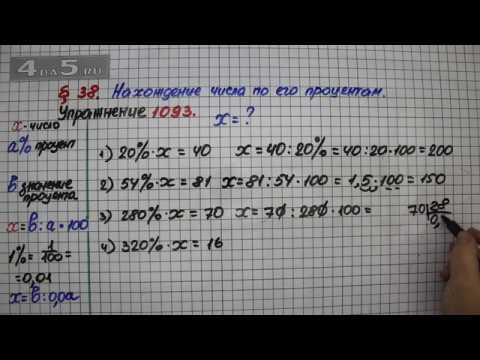 4 ДА 5.RU
§ 38. Нахождение числа по его процентам.
Упражнение 1093.
x = ?
x - число
a% процент
b значение процента
x = b : a · 100
1% = 1/100 =
= 0,01
x = b : 0,0a
1) 20% · x = 40 x = 40 : 20% = 40 : 20 · 100 = 200
2) 54% · x = 81 x = 81 : 54 · 100 = 1,5 · 100 = 150
3) 280% · x = 70 x = 70 : 280 · 100 =
70 28
0,
4) 320% · x = 16